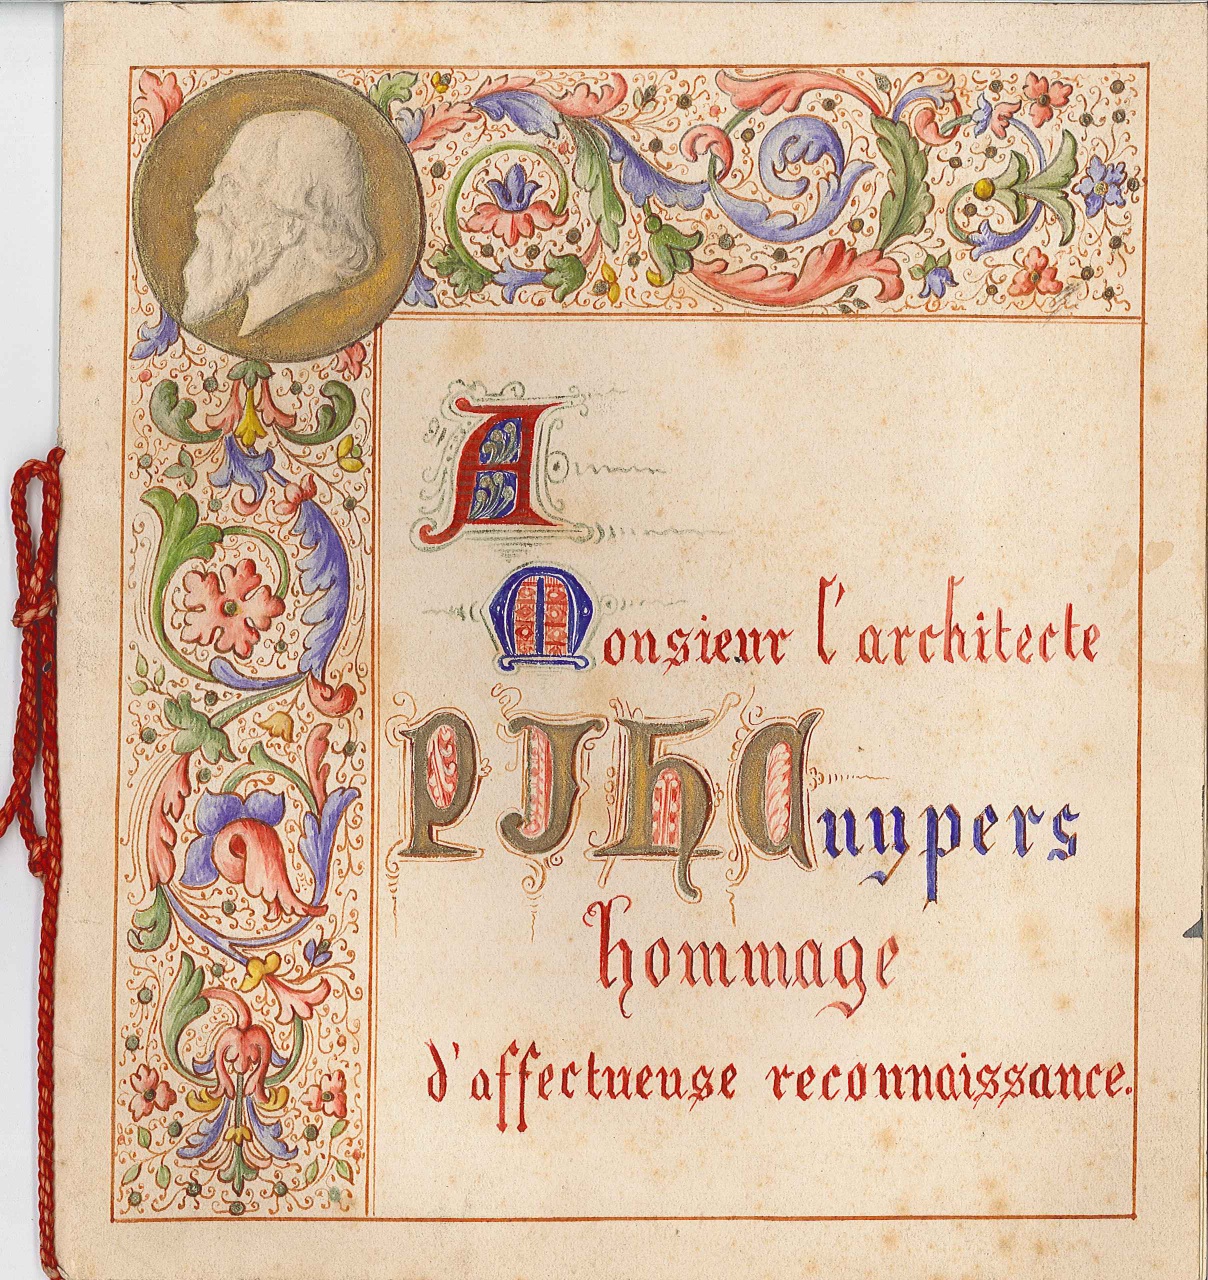 A
Monsieur l'architecte
PJH Cuypers
hommage
d'affectueuse reconnaissance.